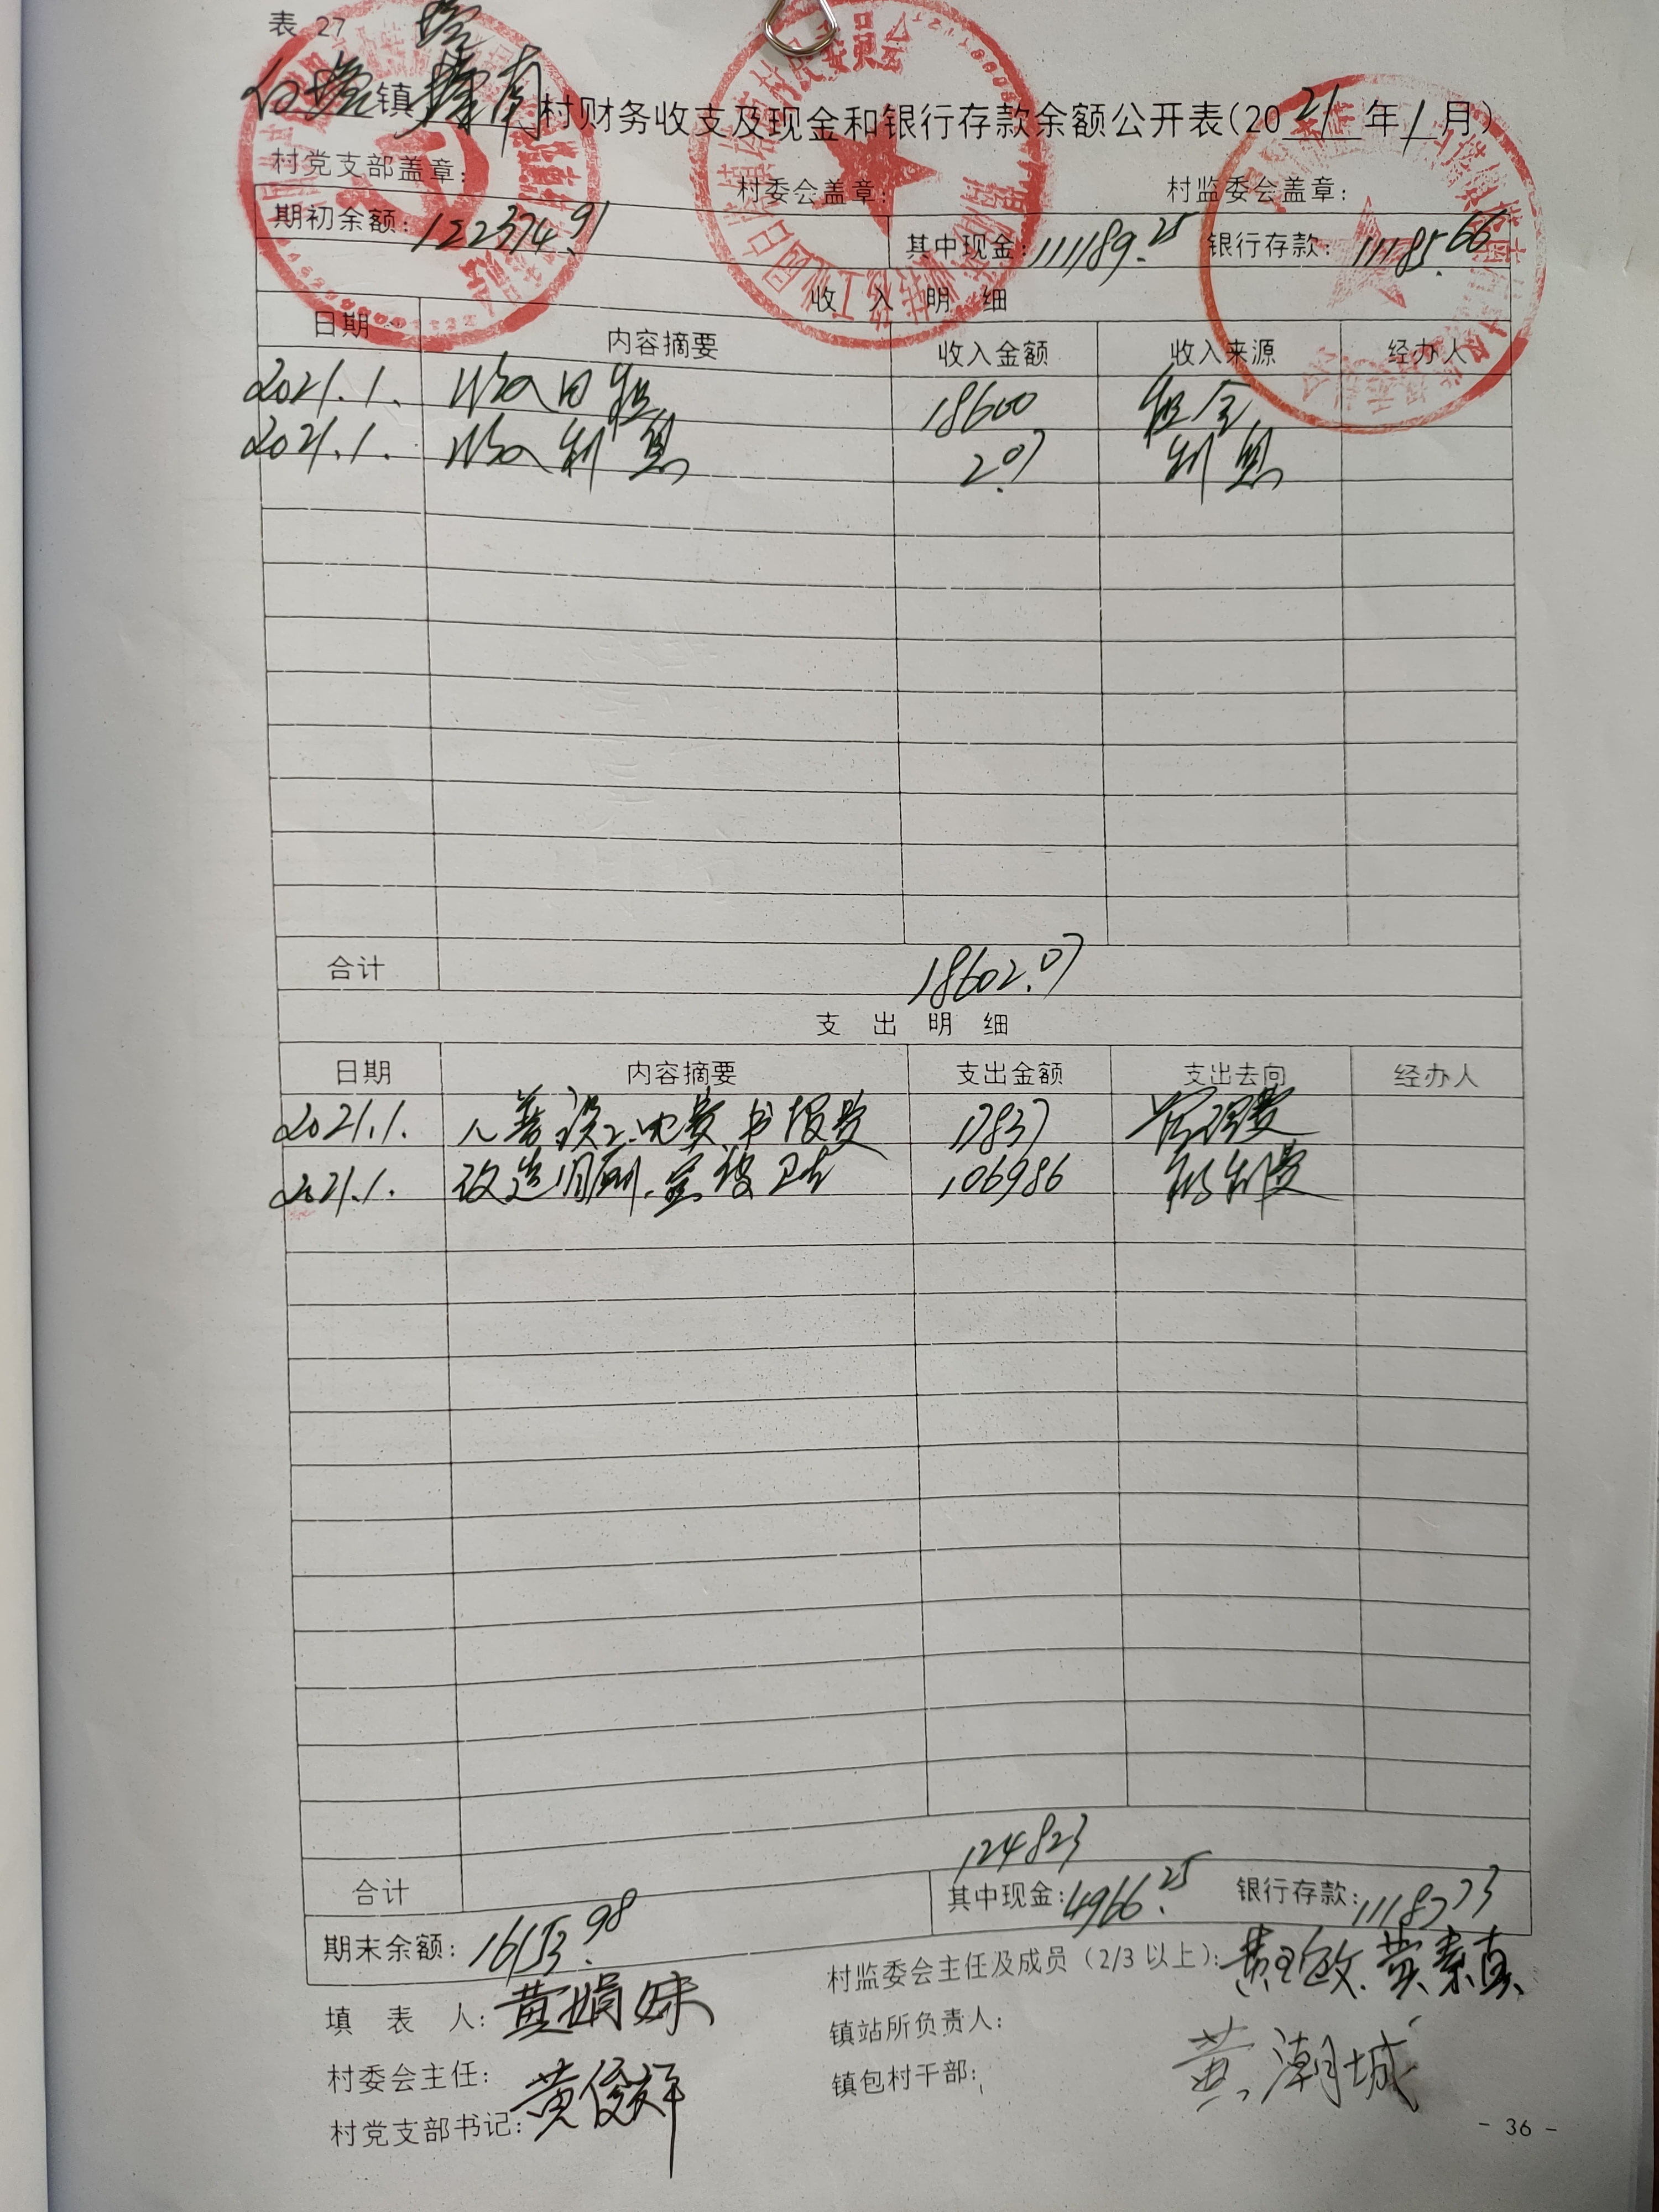 表 27
白塔镇塔南村财务收支及现金和银行存款余额公开表(2021年1月)
村党支部盖章: 村委会盖章: 村监委会盖章:
期初余额: 122374.91 其中现金: 111189.25 银行存款: 11185.66
收 入 明 细
日期 内容摘要 收入金额 收入来源 经办人
2021.1. 收入田租 18600 租金
2021.1. 收入利息 2.07 利息
合计 18602.07
支 出 明 细
日期 内容摘要 支出金额 支出去向 经办人
2021.1. 电费、书报费 17837 管理费
2021.1. 改造 106986 福利费
合计 124823
期末余额: 16153.98 其中现金: 4966.25 银行存款: 11187.73
填 表 人: 黄娟妹 村监委会主任及成员(2/3 以上):
村委会主任: 镇站所负责人:
村党支部书记: 黄俊祥 镇包村干部: 黄潮城
- 36 -